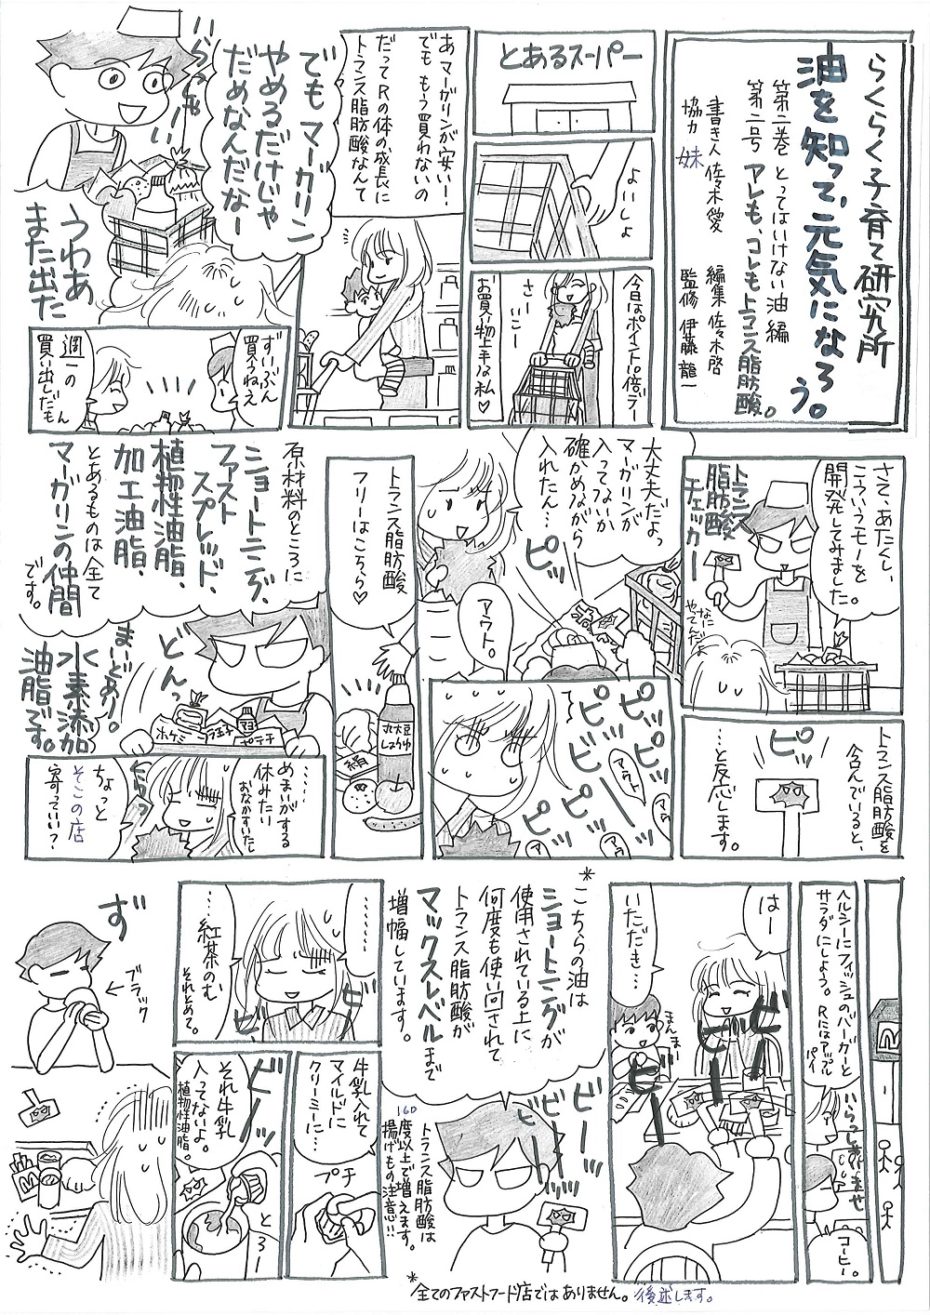 らくらく子育て研究所
油を知って、元気になろう。
第二巻 とってはいけない油 編
第二号 アレも、コレもトランス脂肪酸。
書き人 佐々木愛
編集 佐々木啓
協力 妹
監修 伊藤 龍一
とあるスーパー
よいしょ
今日はポイント10倍デー
さー
いこー
お買い物上手な私♡
あ、マーガリンが安い!
でも もう買わないの
だってRの体の成長に
トランス脂肪酸なんて
でもマーガリン
やめるだけじゃ
だめなんだなー
いらっしゃい
うわあ
また出た
ずいぶん
買うねえ
週一の
買い出しだもん
さて、あたくし、
こういうモノを
開発してみました。
トランス
脂肪酸
チェッカー
なに
やってだ
トランス脂肪酸を
含んでいると、
ピッ
…と反応します。
大丈夫だよっ
マーガリンが
入ってないか
確かめながら
入れたん…
ピッ
アウト。
ピッ
ピッ
ピー
ピッ
ピッ
ピッ
アウト
アウト
トランス脂肪酸
フリーはこちら♡
丸大豆
しょうゆ
絹
原材料のところに
ショートニング、
ファスト
スプレッド、
植物性油脂、
加工油脂、
とあるものは全て
マーガリンの仲間
です。
どんっ
ホケミ
マヨ
ポテチ
まーどめり。
水素添加
油脂です。
めまいがする
休みたい
おなかすいたし
くらっ
ちょっと
そこの店
寄っていい?
ヘルシーにフィッシュのバーガーと
サラダにしよう。 Rにはアップル
パイ
いらっしゃいませ
コーヒー。
はー
いただき…
まんまー
ビー
ビー
ビー
*こちらの油は
ショートニングが
使用されている上に
何度も使い回されて
トランス脂肪酸が
マックスレベルまで
増幅しています。
ビー
ビー
ビー
トランス脂肪酸は
160度以上で増えます。
揚げもの注意!!
………
……
紅茶のむ
それとめて。
ビ
ビ
牛乳入れて
マイルドに
クリーミーに…
プチ
ビーッ
それ牛乳
入ってないよ。
植物性油脂。
とろー
ず
ブラック
*全てのファストフード店ではありません。後述します。